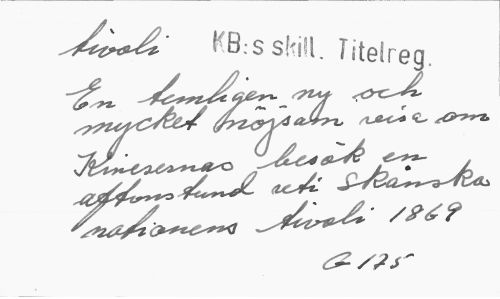 tivoli KB:s skill. Titelreg.
En temligen ny och
mycket nöjsam visa om
Kinesernas besök en
aftonstund uti Skånska
nationens tivoli 1869
G 175